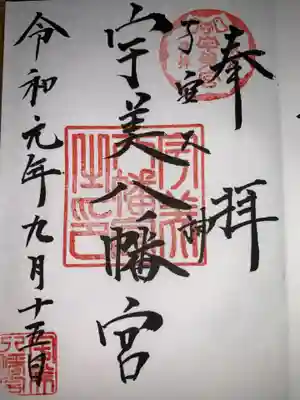 奉拝
子安大神
宇美八幡宮
令和元年九月十五日